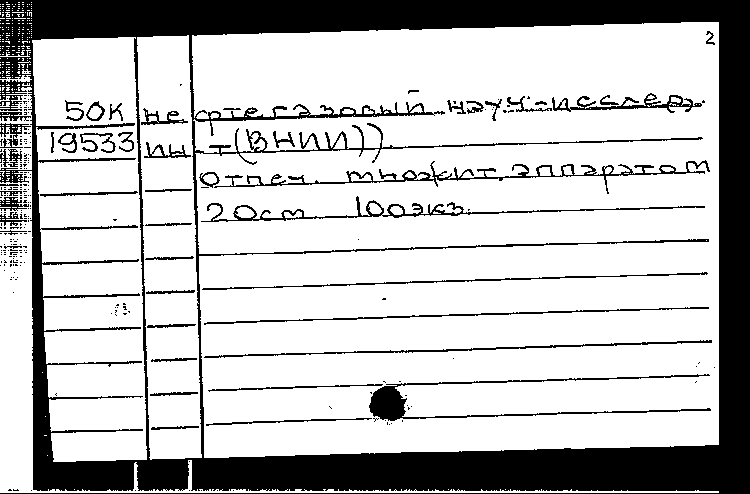 2
50К нефтегазовый науч-исслед.
19533 ин-т(ВНИИ)).
Отпеч. множит. аппаратом
20см 100экз.